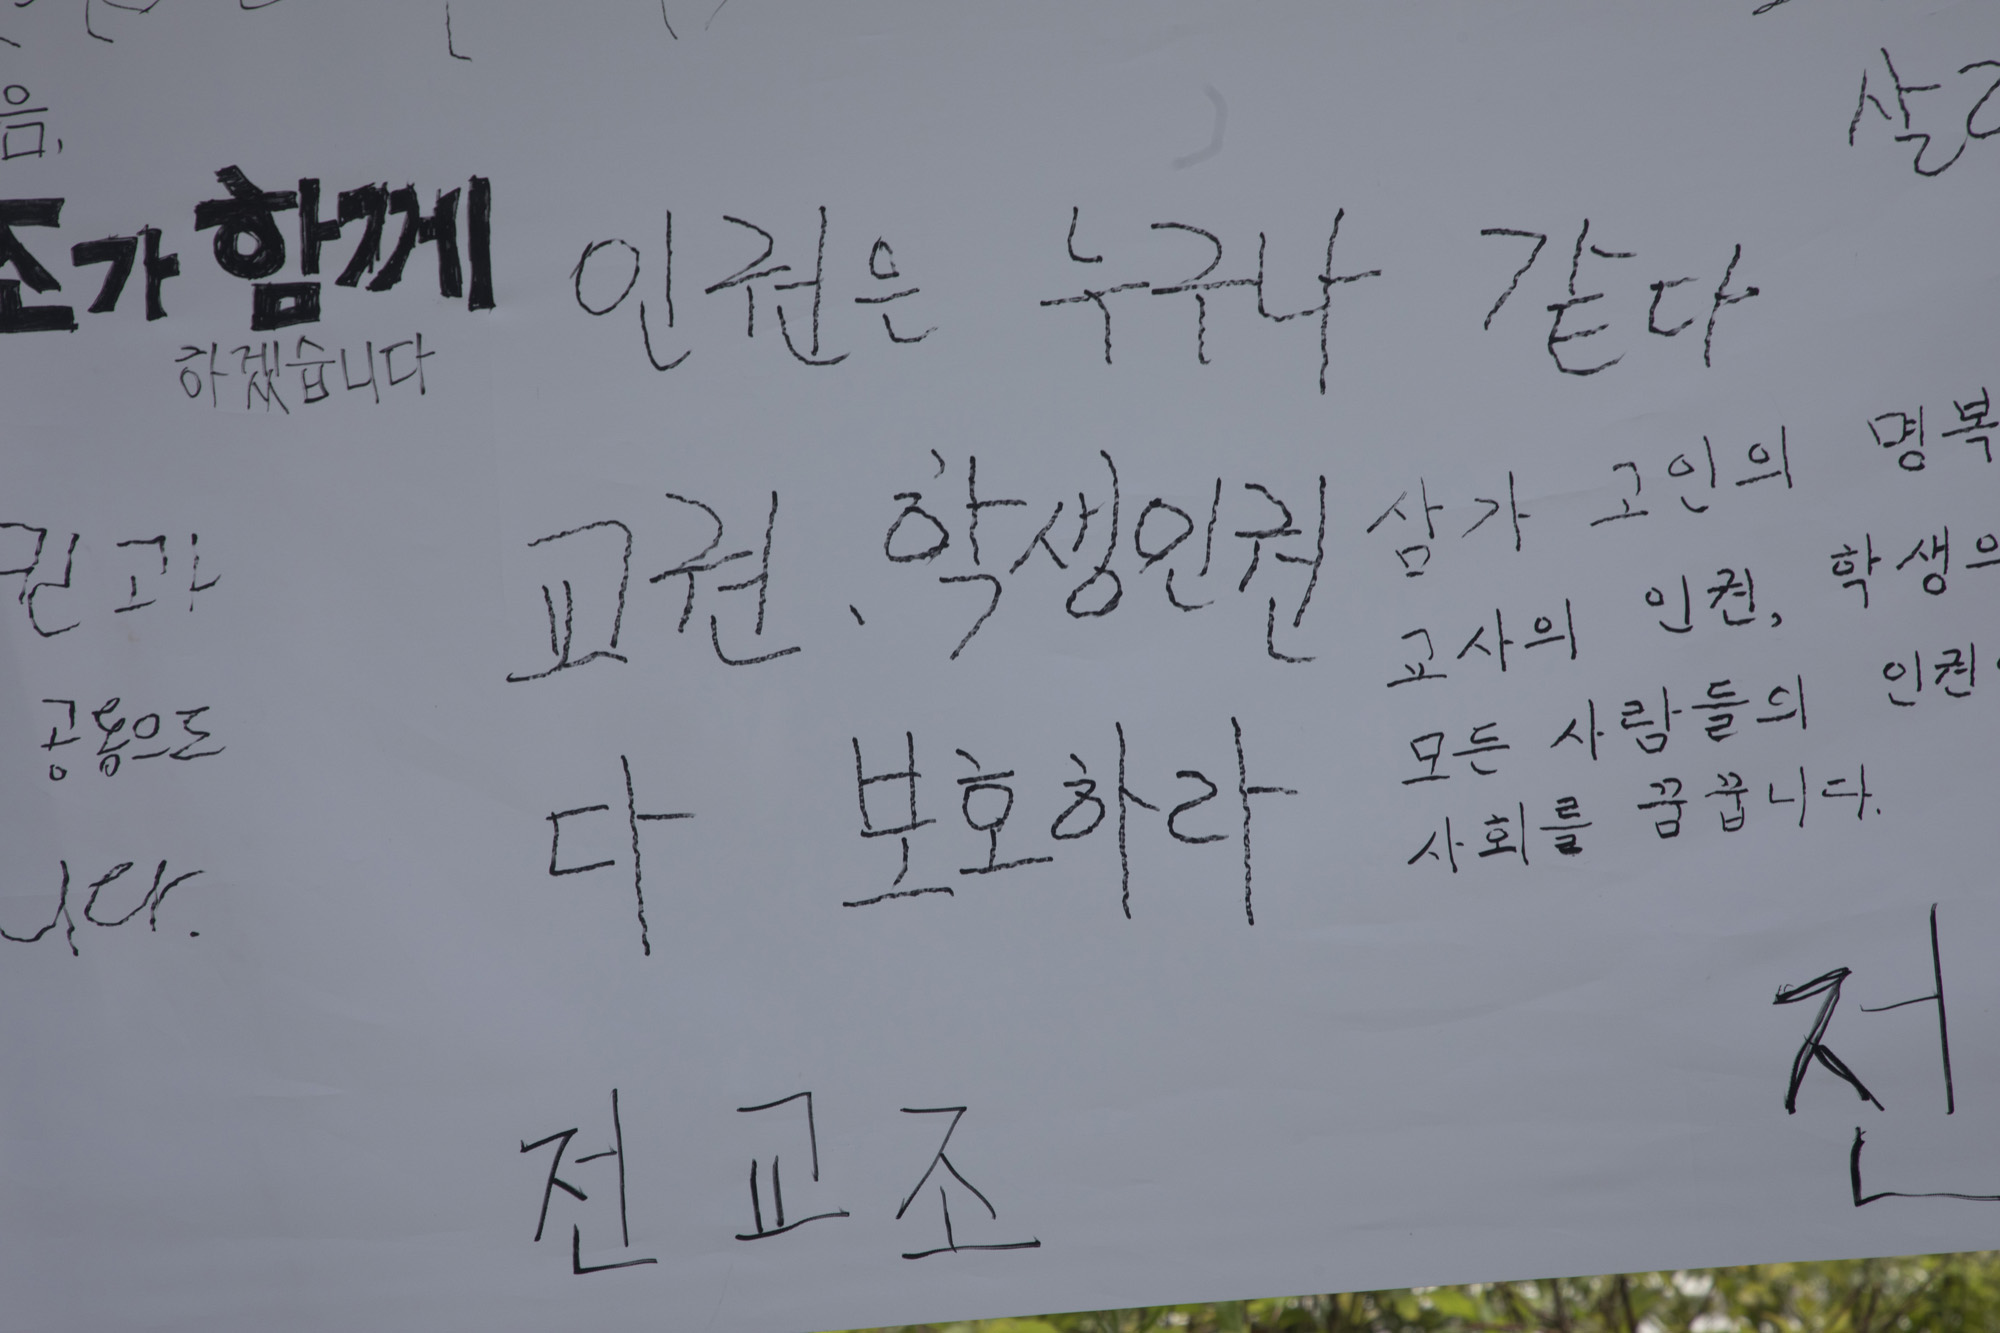 음.
조가 함께
하겠습니다
과
공동으로
니다.
인권은 누구나 같다
교권, 학생인권
다 보호하라
전교조
삼가 고인의 명복
교사의 인권, 학생의
모든 사람들의 인권
사회를 꿈꿉니다.
전